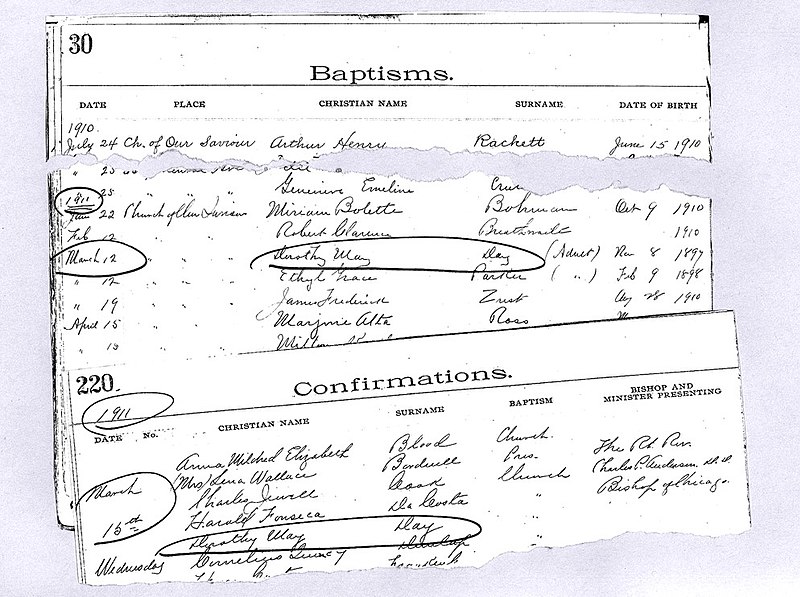 30
Baptisms.
DATE PLACE CHRISTIAN NAME SURNAME DATE OF BIRTH
1910.
July 24 Ch. of Our Saviour Arthur Henry Rackett June 15 1910
" 25
25 " " " Genevieve Emeline
1911
Jan 22 Church of Our Saviour Miriam Bolette Bohman Oct 9 1910
Feb 12 " " " Robert Clarence 1910
March 12 " " " Dorothy May Day (Adult) Nov 8 1897
" 12 " " " Ethyl Grace Parker ( " ) Feb 9 1898
" 19 " " " James Frederick Zust Aug 28 1910
April 15 " " " Marjorie Alta Ross
" 15 " "
220.
Confirmations.
1911
DATE No. CHRISTIAN NAME SURNAME BAPTISM BISHOP AND MINISTER PRESENTING
Anna Mildred Elizabeth Blood Church. The Rt Rev.
Mrs Lena Wallace Pres. Charles P. Anderson D.D.
March Charles Jewell Cook Church Bishop of Chicago.
Harold Fonseca Da Costa "
15th Dorothy May Day "
Wednesday Cornelius Quincy Dunlap "